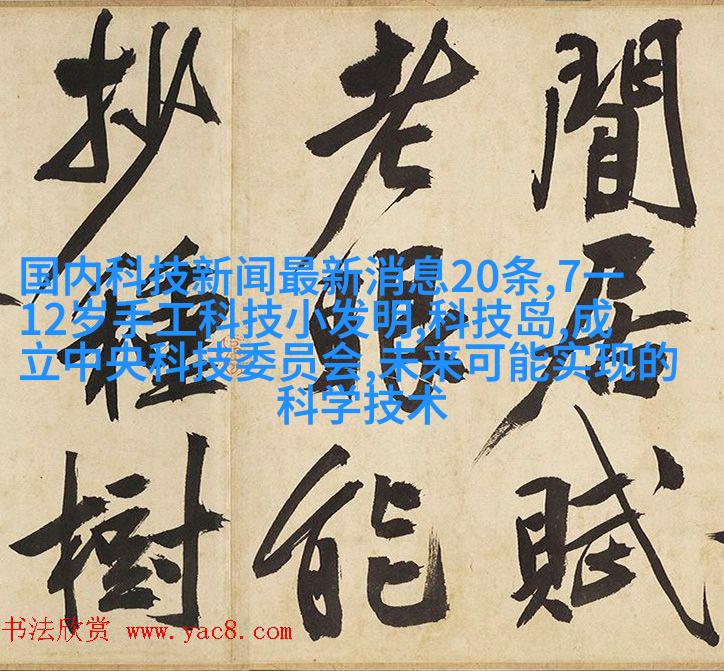 閒居賦
老眼能
抄種樹
国内科技新闻最新消息20条,7一
12岁手工科技小发明,科技岛,成
立中央科技委员会,未来可能实现的
科学技术
书法欣赏 www.yac8.com